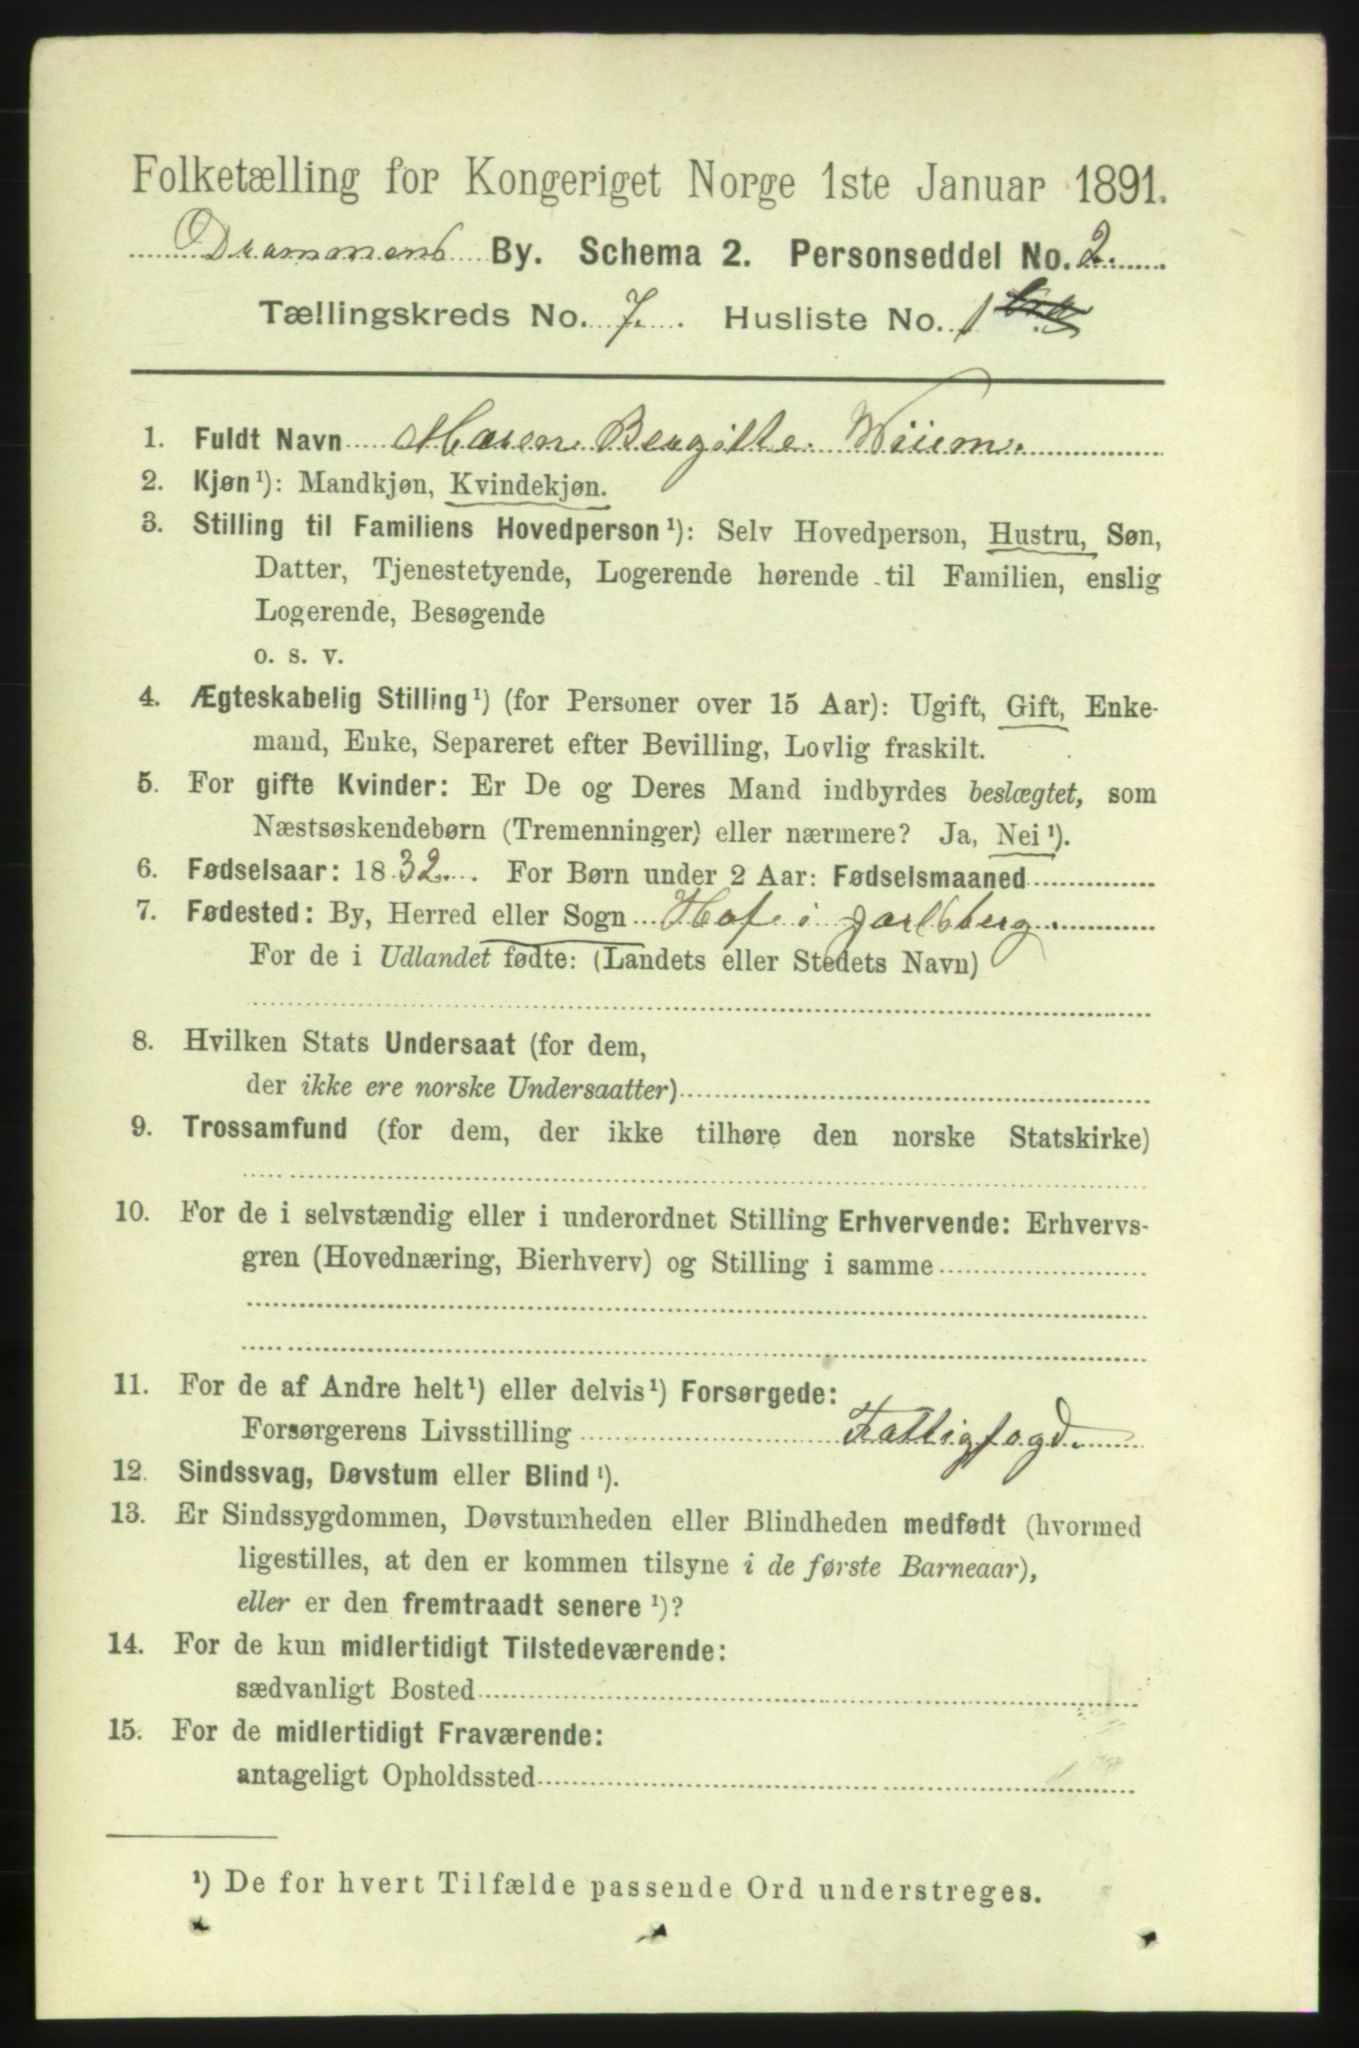 Folketælling for Kongeriget Norge 1ste Januar 1891.
Drammens By. Schema 2. Personseddel No. 2.
Tællingskreds No. 7. Husliste No. 1
1. Fuldt Navn Maren Bergitte Wiium.
2. Kjøn¹): Mandkjøn, Kvindekjøn.
3. Stilling til Familiens Hovedperson¹): Selv Hovedperson, Hustru, Søn,
Datter, Tjenestetyende, Logerende hørende til Familien, enslig
Logerende, Besøgende
o. s. v.
4. Ægteskabelig Stilling¹) (for Personer over 15 Aar): Ugift, Gift, Enke-
mand, Enke, Separeret efter Bevilling, Lovlig fraskilt.
5. For gifte Kvinder: Er De og Deres Mand indbyrdes beslægtet, som
Næstsøskendebørn (Tremenninger) eller nærmere? Ja, Nei¹).
6. Fødselsaar: 1832. For Børn under 2 Aar: Fødselsmaaned
7. Fødested: By, Herred eller Sogn Hof i Jarlsberg.
For de i Udlandet fødte: (Landets eller Stedets Navn)
8. Hvilken Stats Undersaat (for dem,
der ikke ere norske Undersaatter)
9. Trossamfund (for dem, der ikke tilhøre den norske Statskirke)
10. For de i selvstændig eller i underordnet Stilling Erhvervende: Erhvervs-
gren (Hovednæring, Bierhverv) og Stilling i samme
11. For de af Andre helt¹) eller delvis¹) Forsørgede:
Forsørgerens Livsstilling Fattigfogd.
12. Sindssvag, Døvstum eller Blind¹).
13. Er Sindssygdommen, Døvstumheden eller Blindheden medfødt (hvormed
ligestilles, at den er kommen tilsyne i de første Barneaar),
eller er den fremtraadt senere¹)?
14. For de kun midlertidigt Tilstedeværende:
sædvanligt Bosted
15. For de midlertidigt Fraværende:
antageligt Opholdssted
¹) De for hvert Tilfælde passende Ord understreges.